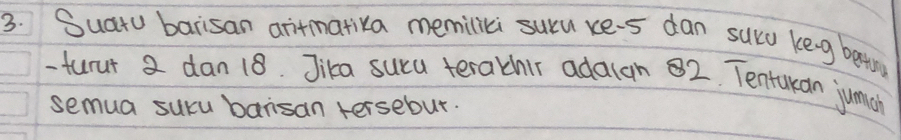 3. Suatu barisan aritmatika memiliki suku ke-5 dan suku ke-9 berturu
-turut 2 dan 18. Jika suku terakhir adalah 82. Tentukan jumlah
semua suku barisan tersebut.